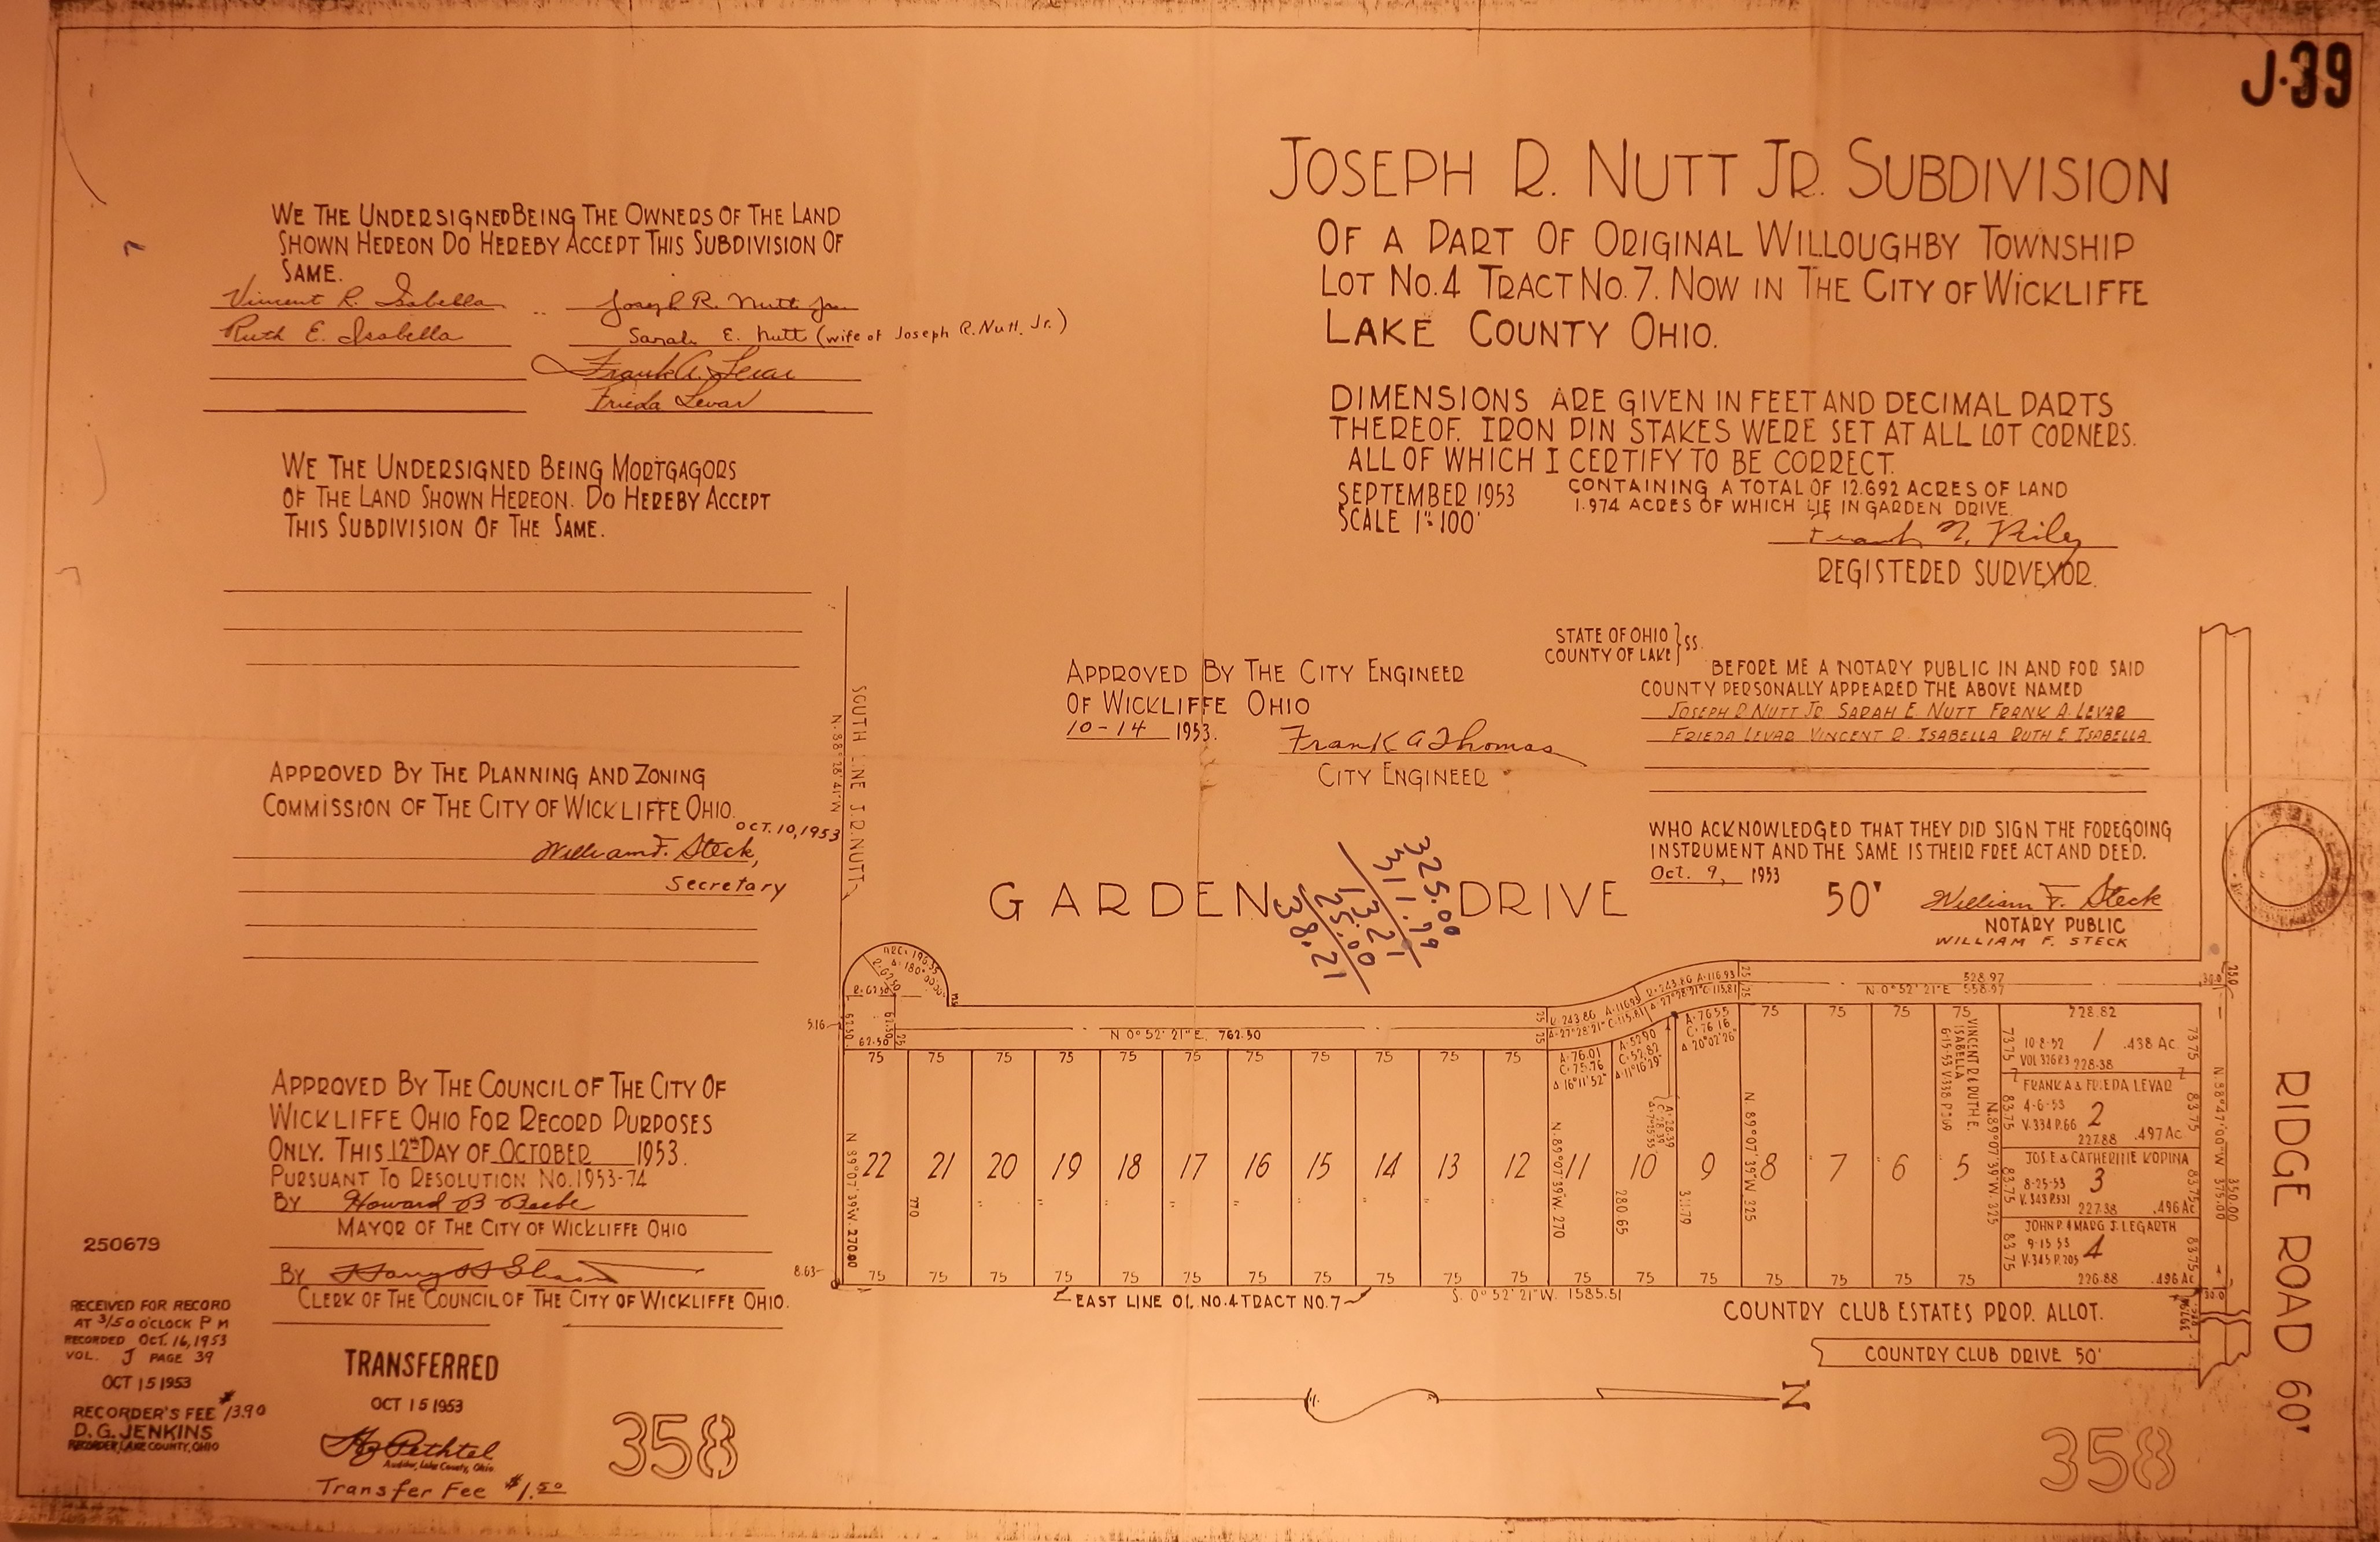 J-39
JOSEPH R. NUTT JR. SUBDIVISION
OF A PART OF ORIGINAL WILLOUGHBY TOWNSHIP
LOT NO.4 TRACT NO.7. NOW IN THE CITY OF WICKLIFFE
LAKE COUNTY OHIO.
DIMENSIONS ARE GIVEN IN FEET AND DECIMAL PARTS
THEREOF. IRON PIN STAKES WERE SET AT ALL LOT CORNERS.
ALL OF WHICH I CERTIFY TO BE CORRECT.
SEPTEMBER 1953
SCALE 1"=100'
CONTAINING A TOTAL OF 12.692 ACRES OF LAND
1.974 ACRES OF WHICH LIE IN GARDEN DRIVE.
Frank N. Riley
REGISTERED SURVEYOR.
WE THE UNDERSIGNED BEING THE OWNERS OF THE LAND
SHOWN HEREON DO HEREBY ACCEPT THIS SUBDIVISION OF
SAME.
Vincent R. Isabella
Joseph R. Nutt Jr.
Ruth E. Isabella
Sarah E. Nutt (wife of Joseph R. Nutt. Jr.)
Frank A. Levar
Frieda Levar
WE THE UNDERSIGNED BEING MORTGAGORS
OF THE LAND SHOWN HEREON. DO HEREBY ACCEPT
THIS SUBDIVISION OF THE SAME.
APPROVED BY THE PLANNING AND ZONING
COMMISSION OF THE CITY OF WICKLIFFE OHIO.
OCT. 10, 1953
William F. Steck,
Secretary
APPROVED BY THE CITY ENGINEER
OF WICKLIFFE OHIO
10-14 1953.
Frank A Thomas
CITY ENGINEER
STATE OF OHIO } SS.
COUNTY OF LAKE
BEFORE ME A NOTARY PUBLIC IN AND FOR SAID
COUNTY PERSONALLY APPEARED THE ABOVE NAMED
JOSEPH R NUTT JR. SARAH E NUTT FRANK A. LEVAR
FRIEDA LEVAR VINCENT R. ISABELLA RUTH E ISABELLA
WHO ACKNOWLEDGED THAT THEY DID SIGN THE FOREGOING
INSTRUMENT AND THE SAME IS THEIR FREE ACT AND DEED.
Oct. 9, 1953
William F. Steck
NOTARY PUBLIC
WILLIAM F. STECK
APPROVED BY THE COUNCIL OF THE CITY OF
WICKLIFFE OHIO FOR RECORD PURPOSES
ONLY. THIS 12th DAY OF OCTOBER 1953.
PURSUANT TO RESOLUTION NO. 1953-74
BY Howard B Beebe
MAYOR OF THE CITY OF WICKLIFFE OHIO
BY
CLERK OF THE COUNCIL OF THE CITY OF WICKLIFFE OHIO.
250679
RECEIVED FOR RECORD
AT 3/50 O'CLOCK P M
RECORDED OCT. 16, 1953
VOL. J PAGE 39
OCT 15 1953
RECORDER'S FEE $13.90
D. G. JENKINS
RECORDER, LAKE COUNTY, OHIO
TRANSFERRED
OCT 15 1953
Auditor, Lake County, Ohio
Transfer Fee $1.50
358
SOUTH LINE J.R. NUTT
N. 88° 28' 41" W
GARDEN DRIVE 50'
325.00
311.79
13.21
25.00
38.21
ARC. 196.35
Δ. 180° 00' 00"
R. 62.50
R. 62.50
62.50
62.50
62.50
25
5.16
N 0° 52' 21" E. 762.50
25 25
R. 243.86 A. 116.93
Δ. 27° 28' 21" C. 115.81
R. 243.86 A. 116.93
Δ. 27° 28' 21" C. 115.81
25 25
528.97
N. 0° 52' 21" E 558.97
30.0
25.0
75 75 75 75 75 75 75 75 75 75 75
A. 76.01
C. 75.76
Δ 16° 11' 52"
A. 52.90
C. 52.82
Δ. 11° 16' 29"
A. 28.39
C. 28.39
A. 76.55
C. 76.16
Δ 20° 02' 26"
75 75 75 75
22 21 20 19 18 17 16 15 14 13 12 11 10 9 8 7 6 5
N 89° 07' 39" W. 270.00
270
N. 89° 07' 39" W. 270
280.65
311.79
N 89° 07' 39" W. 325
VINCENT R & RUTH E.
ISABELLA
6-15-53 V338 P.569
N. 89° 07' 39" W. 325
228.82
73.75
1
73.75
10-8-52
.438 Ac
VOL 326 P.3
228.38
FRANK A & FRIEDA LEVAR
83.75
4-6-53
2
83.75
V. 334 P.66
227.88
.497 Ac
JOS E & CATHERINE KOPINA
83.75
8-25-53
3
83.75
V. 343 P.331
227.38
.496 Ac
JOHN P. & MARG J. LEGARTH
83.75
9-15 53
4
83.75
V-345 P.205
226.88
.496 Ac
N 88° 47' 00" W 375.00
350.00
30.0
8.63
75 75 75 75 75 75 75 75 75 75 75 75 75 75 75 75 75 75
EAST LINE O.L. NO. 4 TRACT NO. 7
S. 0° 52' 21" W. 1585.51
COUNTRY CLUB ESTATES PROP. ALLOT.
COUNTRY CLUB DRIVE 50'
RIDGE ROAD 60'
N
358